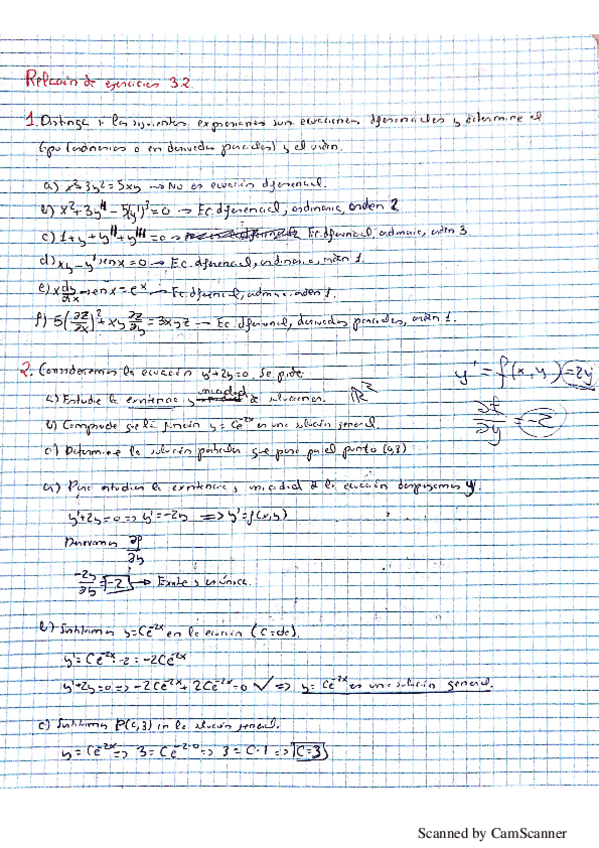 Relación de ejercicios 3.2
1. Distinga si las siguientes expresiones son ecuaciones diferenciales y determine el
tipo (ordinarias o en derivadas parciales) y el orden.
a) x²-3y²=5xy → No es ecuación diferencial.
b) x²+3y''-5(y')³=0 → Ec. diferencial, ordinaria, orden 2
c) 1+y+y''+y'''=0 → Ec. diferencial, ordinaria, orden 3.
d) xy-y'senx=0 → Ec. diferencial, ordinaria, orden 1.
e) x dy/dx - senx = eˣ → Ec. diferencial, ordinaria, orden 1.
f) 5(∂z/∂x)²+xy ∂z/∂y = 3xyz → Ec. diferencial, derivadas parciales, orden 1.
2. Consideremos la ecuación y'+2y=0. Se pide:
y' = f(x,y) = -2y
a) Estudie la existencia y unicidad de soluciones. ℝ²
∂f/∂y = -2
b) Compruebe que la función y=Ce⁻²ˣ es una solución general.
c) Determine la solución particular que pasa por el punto (0,3)
a) Para estudiar la existencia y unicidad de la ecuación despejamos y'.
y'+2y=0 => y'=-2y => y'=f(x,y)
Derivamos ∂f/∂y
-2y/∂y = -2 → Existe y es única.
b) Sustituimos y=Ce⁻²ˣ en la ecuación (C=cte).
y'=Ce⁻²ˣ·-2=-2Ce⁻²ˣ
y'+2y=0 => -2Ce⁻²ˣ+2Ce⁻²ˣ=0 ✓ => y=Ce⁻²ˣ es una solución general.
c) Sustituimos P(0,3) en la solución general.
y=Ce⁻²ˣ => 3=Ce⁻²·⁰ => 3=C·1 => C=3
Scanned by CamScanner